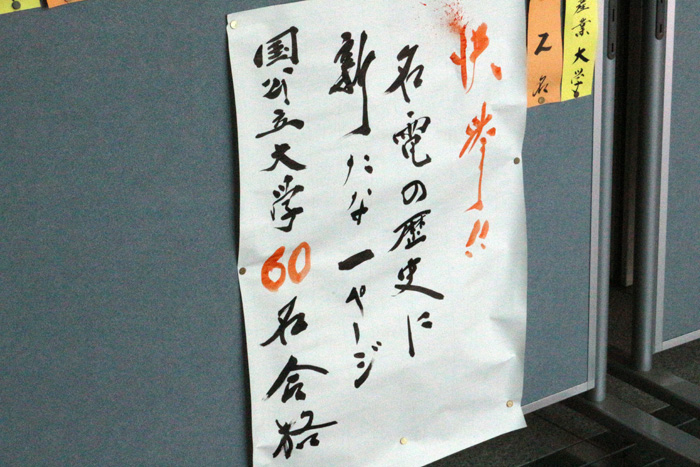 快挙!!
名電の歴史に
新たな一ページ
国公立大学60名合格
産業大学
2名